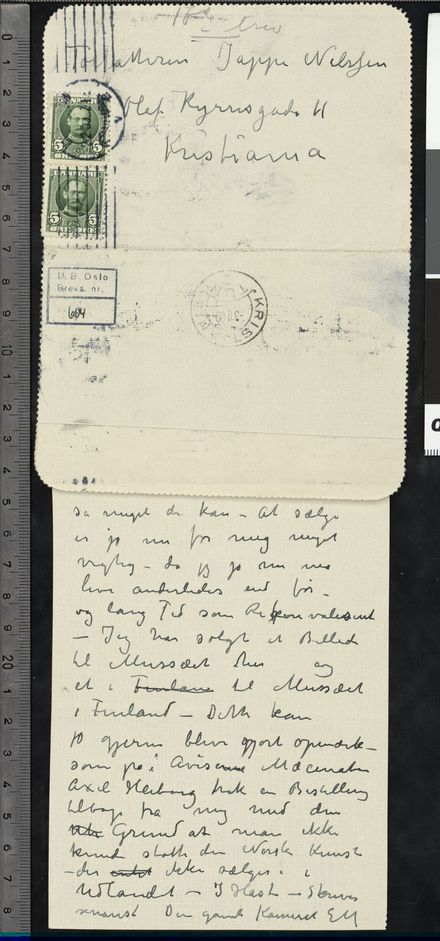 Forfatteren Jappe Nilssen
Olaf Kyrresgade 11
Kristiania
5 5
5 5
U. B. Oslo
Brevs. nr.
604
KRISTIANIA
så meget du kan – At sælge
er jo nu for mig meget
vigtig – da jeg jo nu må
leve anderledes end før –
og lang Tid som Rekonvalesent
– Jeg har solgt et Billede
til Mussæet her og
et i Finland til Mussæet
i Finland – Dette kan
jo gjerne blive gjort
som på i Aviserne Mæcenaten
Axel Heiberg trak en Bestilling
tilbage fra mig med den
Grund at man ikke
kunde støtte den Norske Kunst
– der ikke sælges i
Udlandet – I Hast – Skriver
snarest Din gamle Kamerat EM